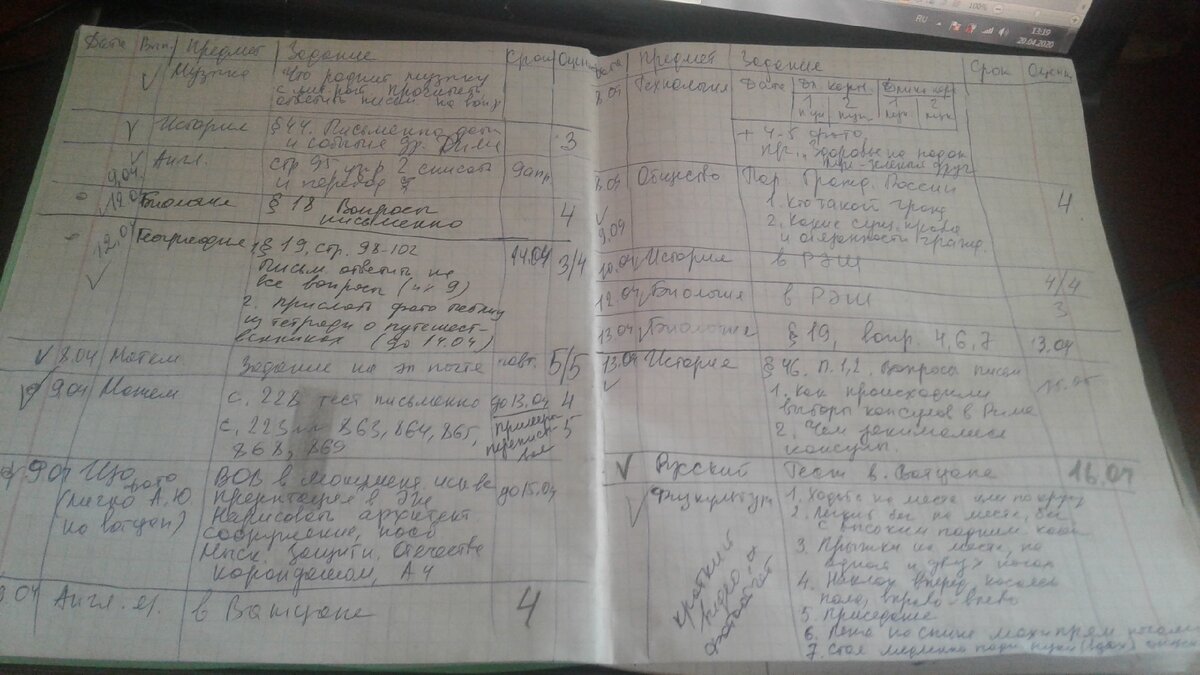 100%
RU
13:19
20.04.2020
Дата Вып. Предмет Задание Срок Оценк
Музыка Что роднит музыку
с просмотреть
ответить письм на вопр
История § 44. Письменно даты
и события др. 3
9.04. Англ. стр 95 упр 2 списать
и перевод 9 апр
Биология § 18 Вопросы
письменно 4
12.04 География 1. § 19, стр. 98-102 14.04 3/4
Письм. ответить на
все вопросы (их 9)
2. прислать фото
из тетради о путешест-
венниках (до 14.04)
8.04 Матем. Задание на эл почте 5/5
9.04 Матем с. 222 тест письменно до 13.04 4
с. 223 863, 864, 865, примеры 5
868, 869
9.04 ИЗО ВОВ в искусс до 15.04
(лично А.Ю. презентация в
на ватцап) Нарисовать архитект.
сооружение,
Защитн. Отечества
карандашом, А4
Англ. яз. в Ватцапе 4
Дата Предмет Задание Срок Оценк
8.04 Технология Дата
1 2 1 2
+ 4-5 фото,
Общество Пар. Гражд. России 4
1. Кто такой гражд.
9.04 2. Какие сущ. права
и обязанности гражд.
10.04 История в РЭШ 4/4
12.04 Биология в РЭШ 3
13.04 Биология § 19, вопр. 4, 6, 7 13.04
13.04 История § 46. П. 1,2. Вопросы письм
1. Как происходили
выборы консулов в Риме
2. Чем занимались
консулы.
Русский Тест в Ватцапе 16.04
Физкультура 1. Ходьба на месте или по кругу
2. бег на месте, бег
с высоким подним. колен
3. Прыжки на месте, на
одной и двух ногах
4. Наклон вперед, касаясь
пола, вправо-влево
5. Приседание
6. Лёжа на спине махи прям. ногами
7. Стоя медленно подн руки (вдох)
краткий
видео